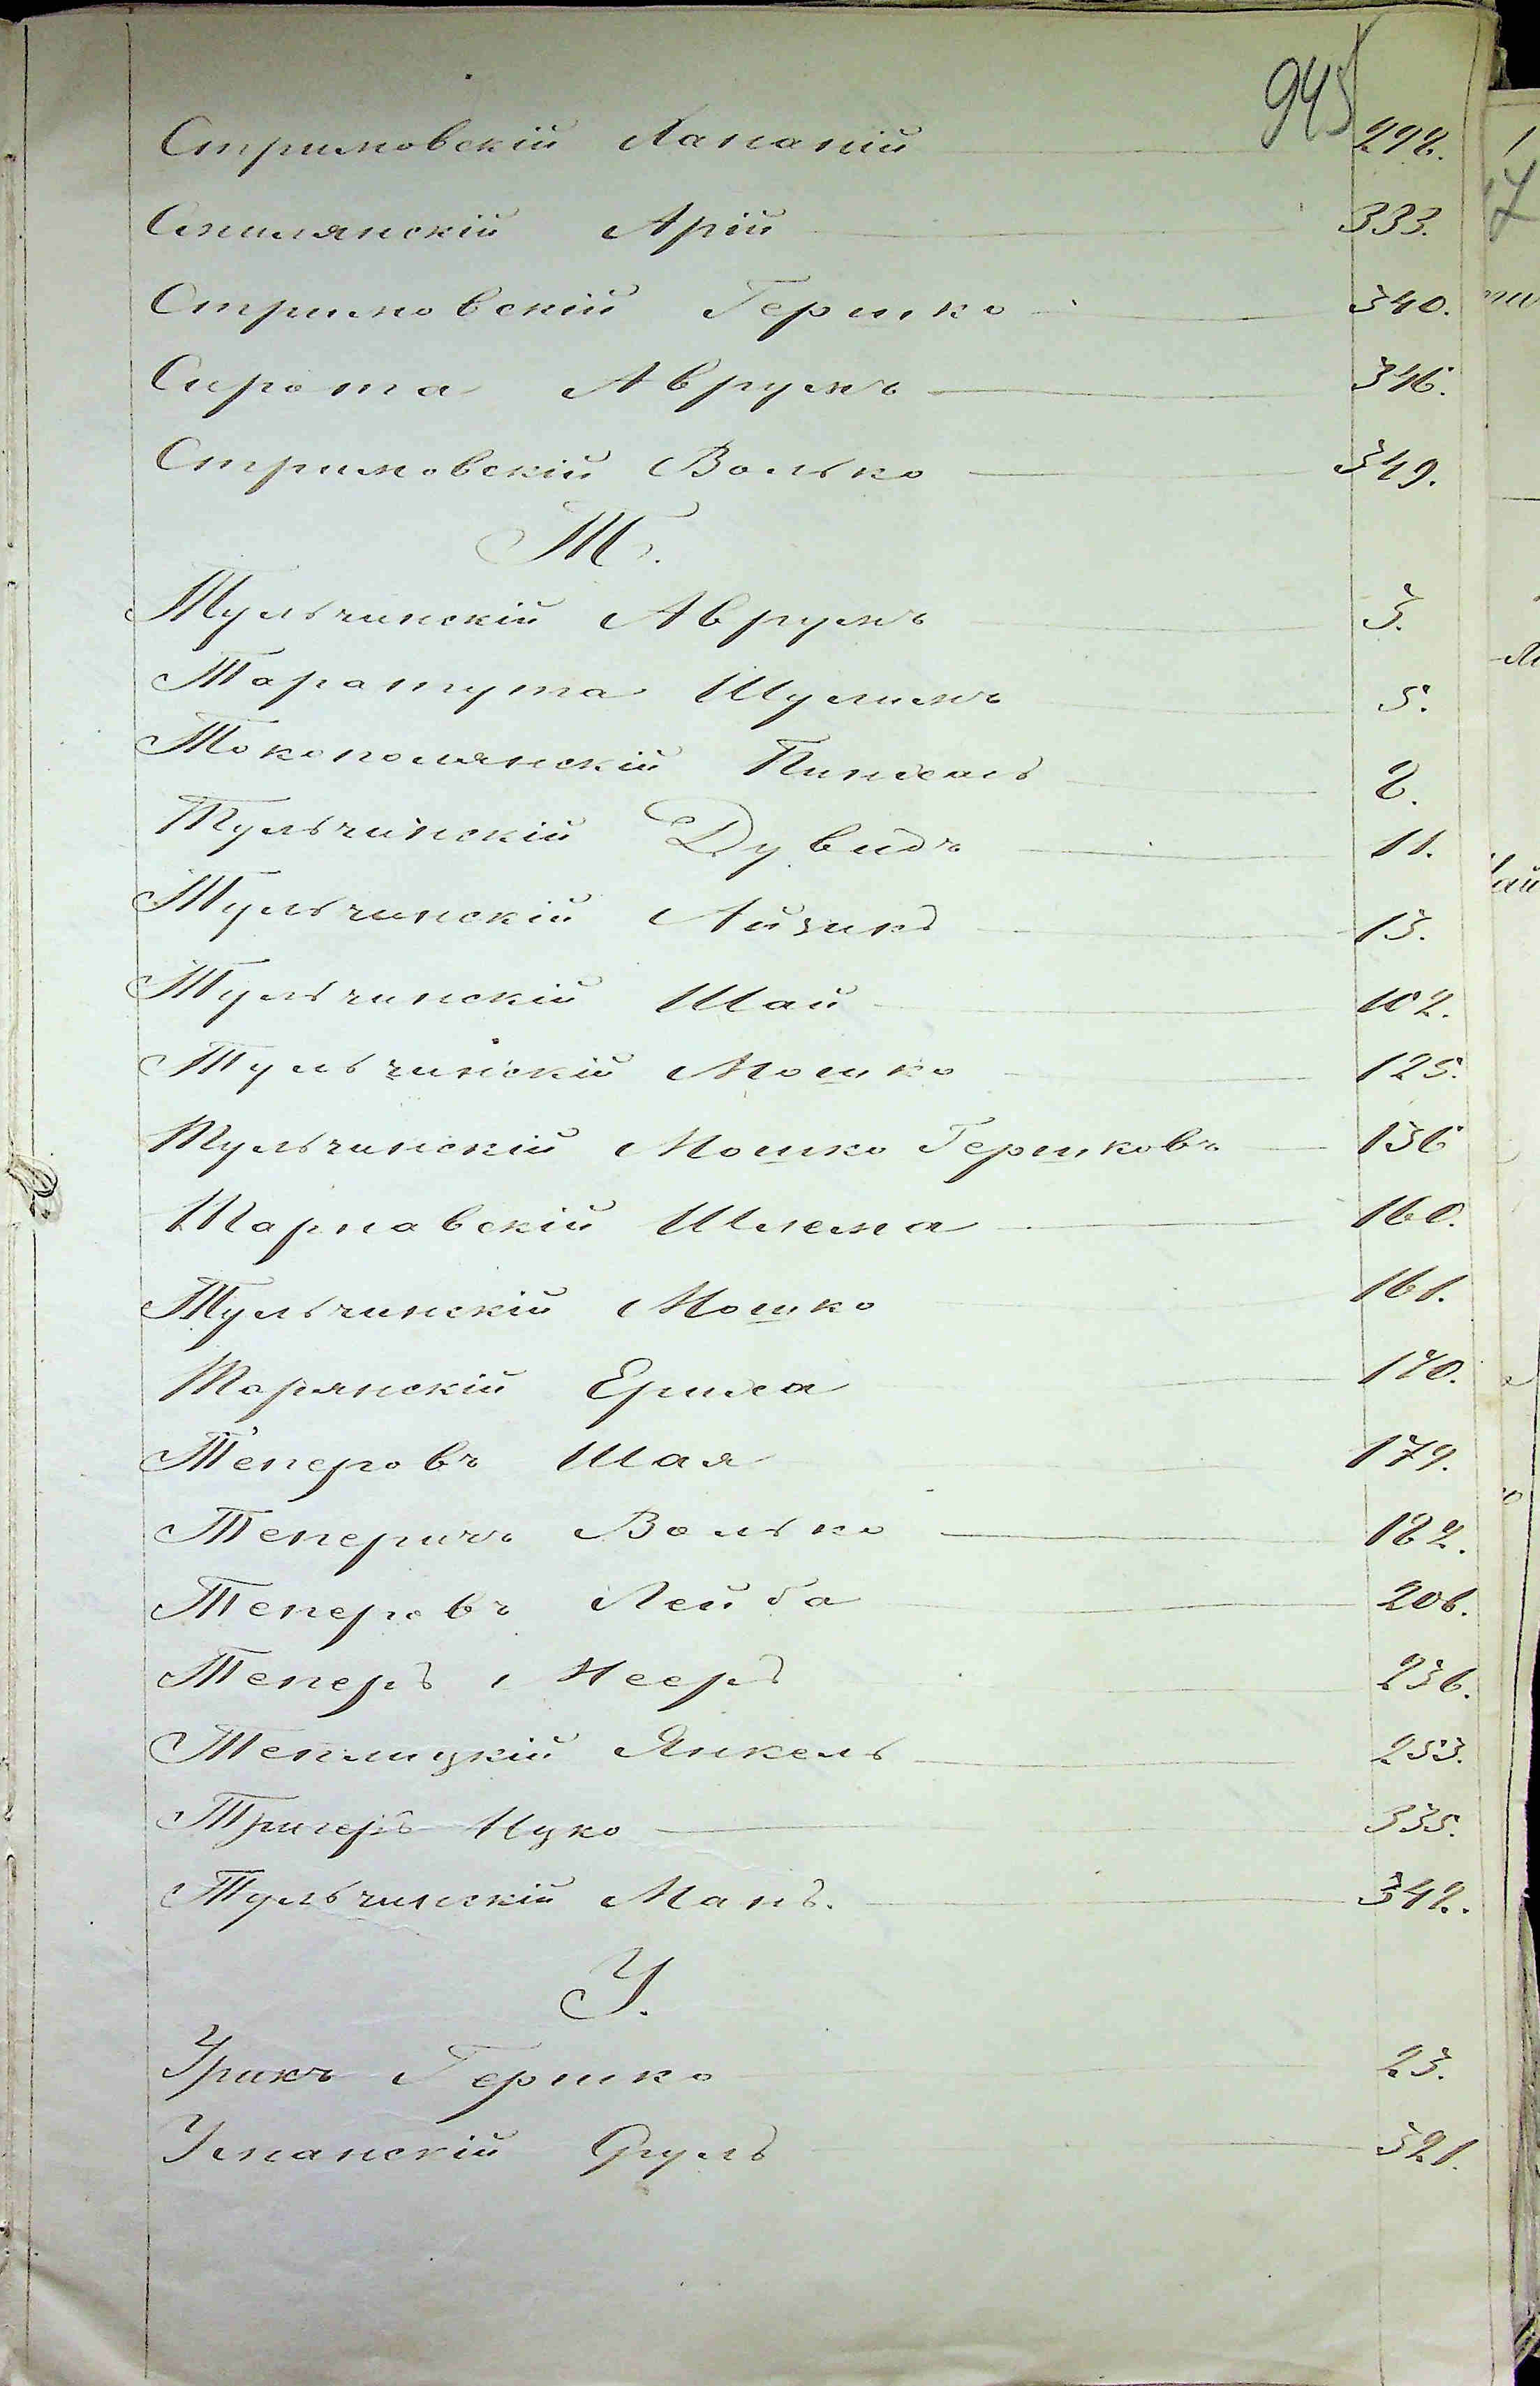 945
Стримовскій Хананій 298.
Смилянскій Арій 333.
Стримовскій Гершко 340.
Сирота Аврумъ 346.
Стримовскій Волько 349.
Т.
Тульчинскій Аврумъ 3.
Таратута Шулимъ 5.
Токополянскій Пинхасъ 8.
Тульчинскій Дувидъ 11.
Тульчинскій Айзикъ 13.
Тульчинскій Шай 102.
Тульчинскій Мошко 125.
Тульчинскій Мошко Гершковъ 136
Тарнавскій Шлема 160.
Тульчинскій Мошко 161.
Торянскій Ериха 170.
Теперовъ Шая 179.
Теперичъ Волько 182.
Теперовъ Лейба 206.
Теперъ Мееръ 236.
Теплицкій Янкель 253.
Тригеръ Ицко 335.
Тульчинскій Манъ. 342.
У.
Урихъ Гершко 23.
Уманскій Сруль 321.